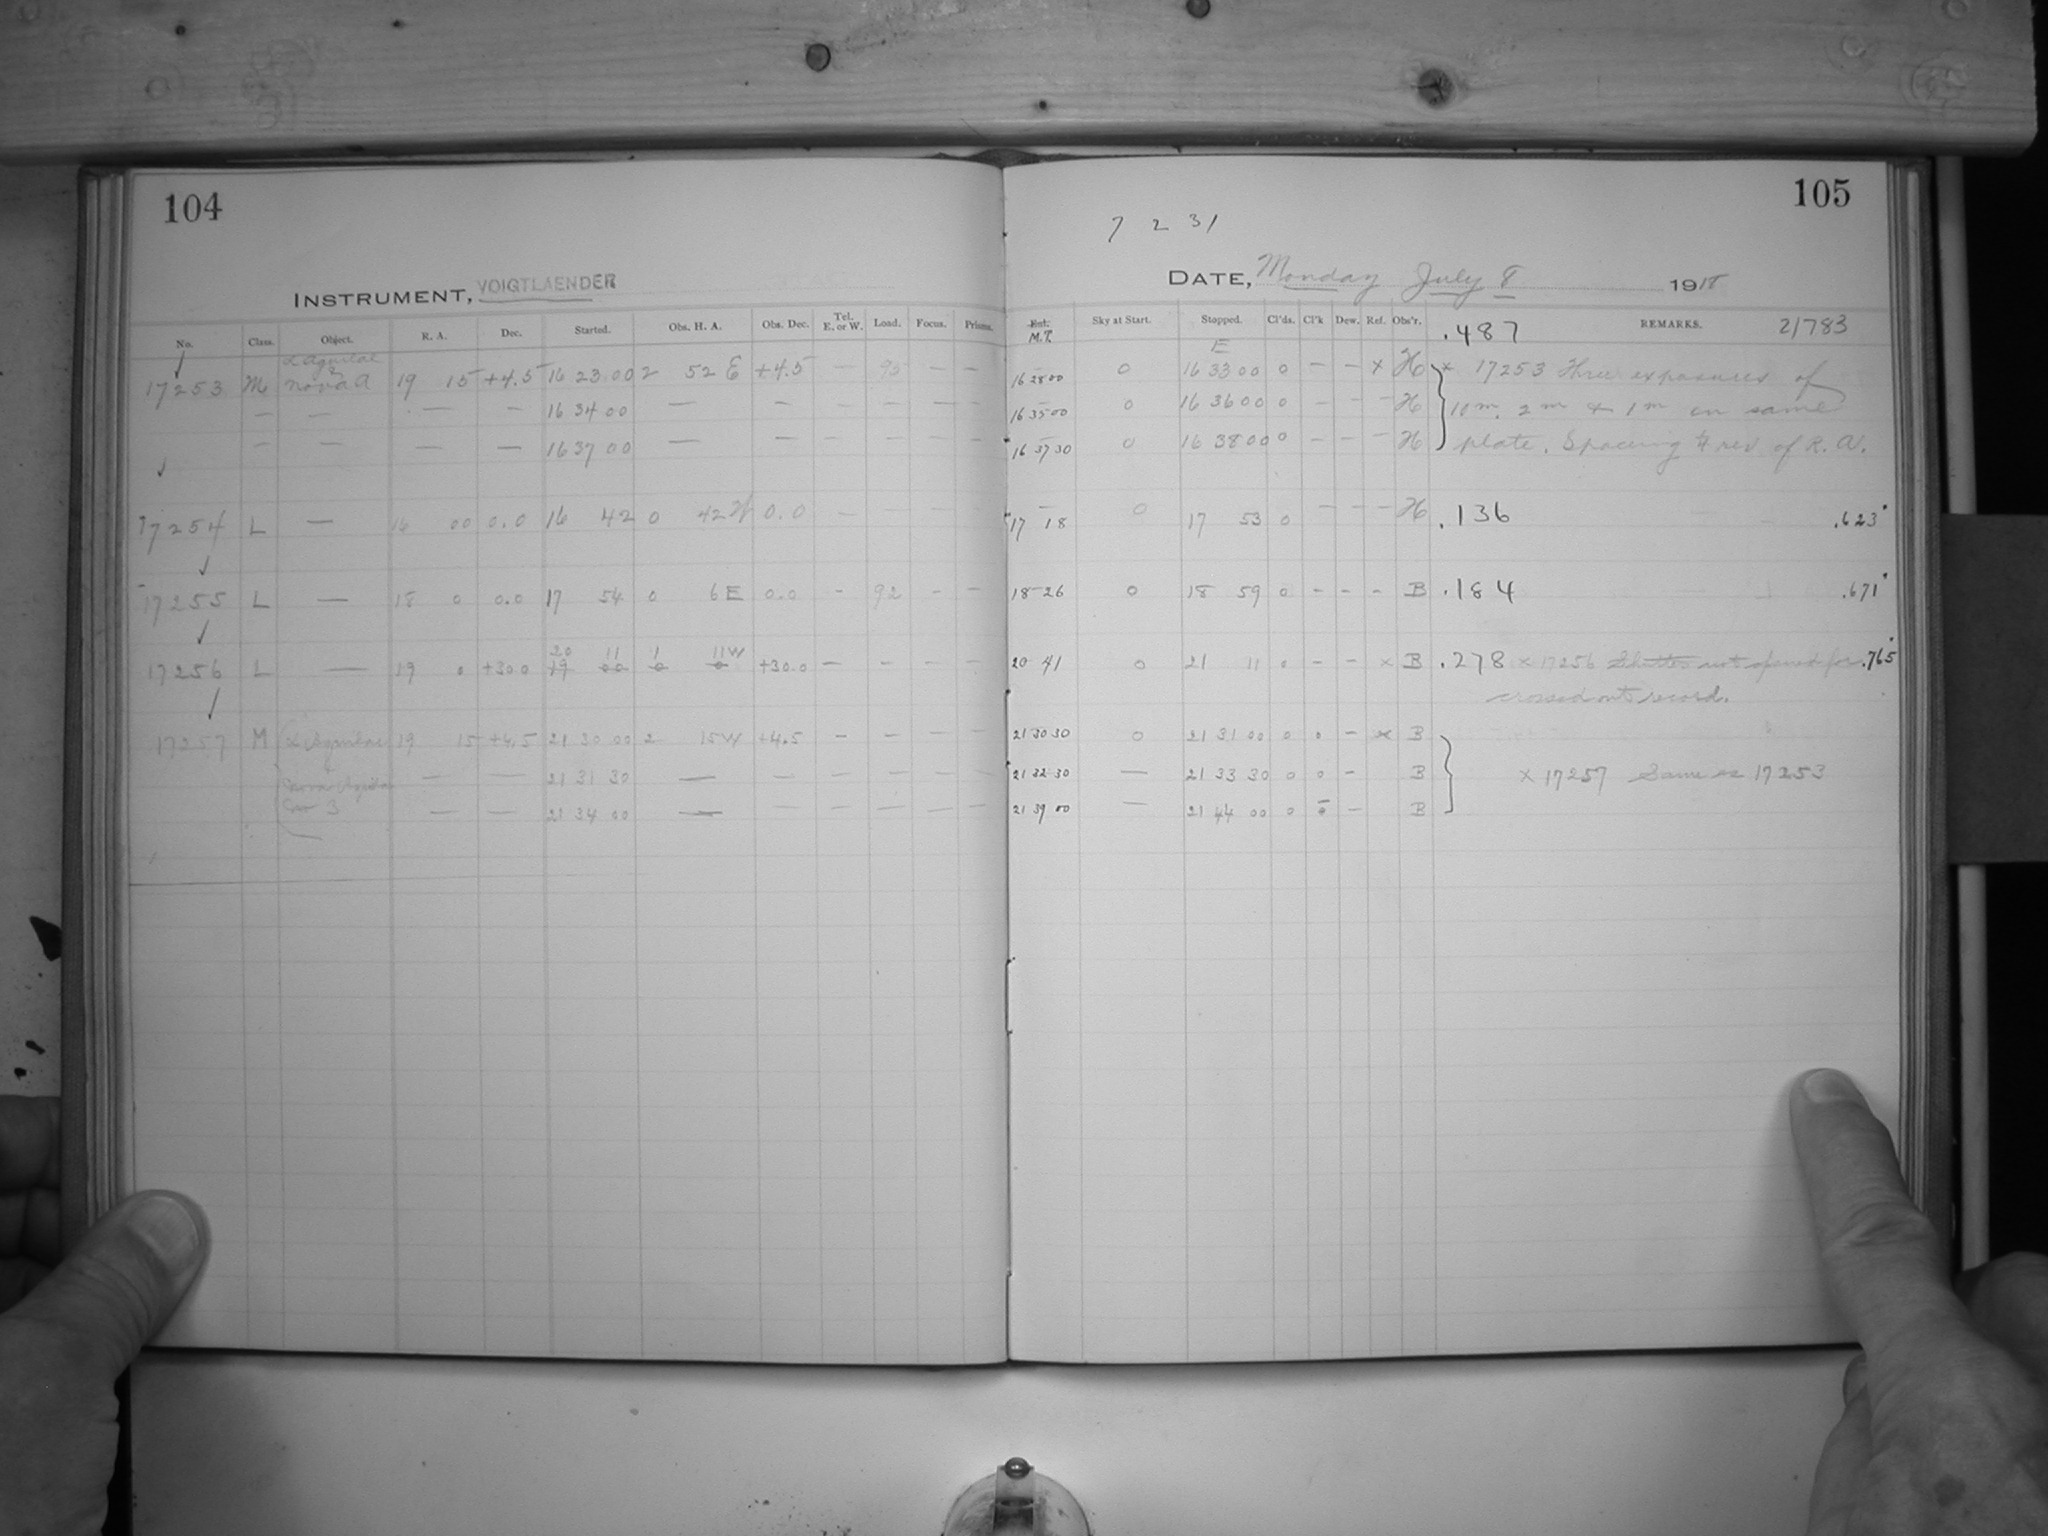 104
105
7 2 31
INSTRUMENT, VOIGTLAENDER
DATE, Monday July 8 1918
No. Class. Object. R. A. Dec. Started. Obs. H. A. Obs. Dec. Tel. E. or W. Load. Focus. Prisms. Ent. M.T. Sky at Start. Stopped. Cl'ds. Cl'k Dew. Ref. Obs'r. .487 REMARKS. 21783
α Aquilae & E
17253 M Nova A 19 15 +4.5 16 23 00 2 52 E +4.5 — — — 16 28 00 0 16 33 00 0 — — x H x 17253 Three exposures of
— — — — 16 34 00 — — — — — — 16 35 00 0 16 36 00 0 — — — H 10m, 2m & 1m on same
— — — — 16 37 00 — — — — — — 16 37 30 0 16 38 00 0 — — — H plate. Spacing rev of R. A.
17254 L — 16 00 0.0 16 42 0 42 W 0.0 — — — — 17 18 0 17 53 0 — — — H .136 .623
17255 L — 18 0 0.0 17 54 0 6 E 0.0 — 92 — — 18 26 0 18 59 0 — — — B .184 .671
20 11 1 11W
17256 L — 19 0 +30.0 19 00 0 0 +30.0 — — — — 20 41 0 21 11 0 — — x B .278 x 17256 Shutter not opened for .765
crossed out record.
17257 M α Aquilae 19 15 +4.5 21 30 00 2 15 W +4.5 — — — — 21 30 30 0 21 31 00 0 0 — x B
& Nova Aquilae — — 21 31 30 — — — — — — 21 32 30 — 21 33 30 0 0 — B x 17257 Same as 17253
3 — — 21 34 00 — — — — — — 21 39 00 — 21 44 00 0 0 — B